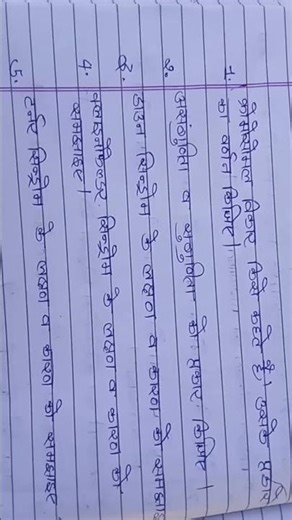 1. क्रोमोसोमल विकार किसे कहते है। इसके प्रकार
का वर्णन किजिए।
2. असुगुणिता व सुगुणिता के प्रकार लिखिए।
3. डाउन सिन्ड्रोम के लक्षण व कारण को समझाइए
4. क्लाइनेफिल्टर सिन्ड्रोम के लक्षण व कारण को
समझाइए।
5. टर्नर सिन्ड्रोम के लक्षण व कारण को समझाइए